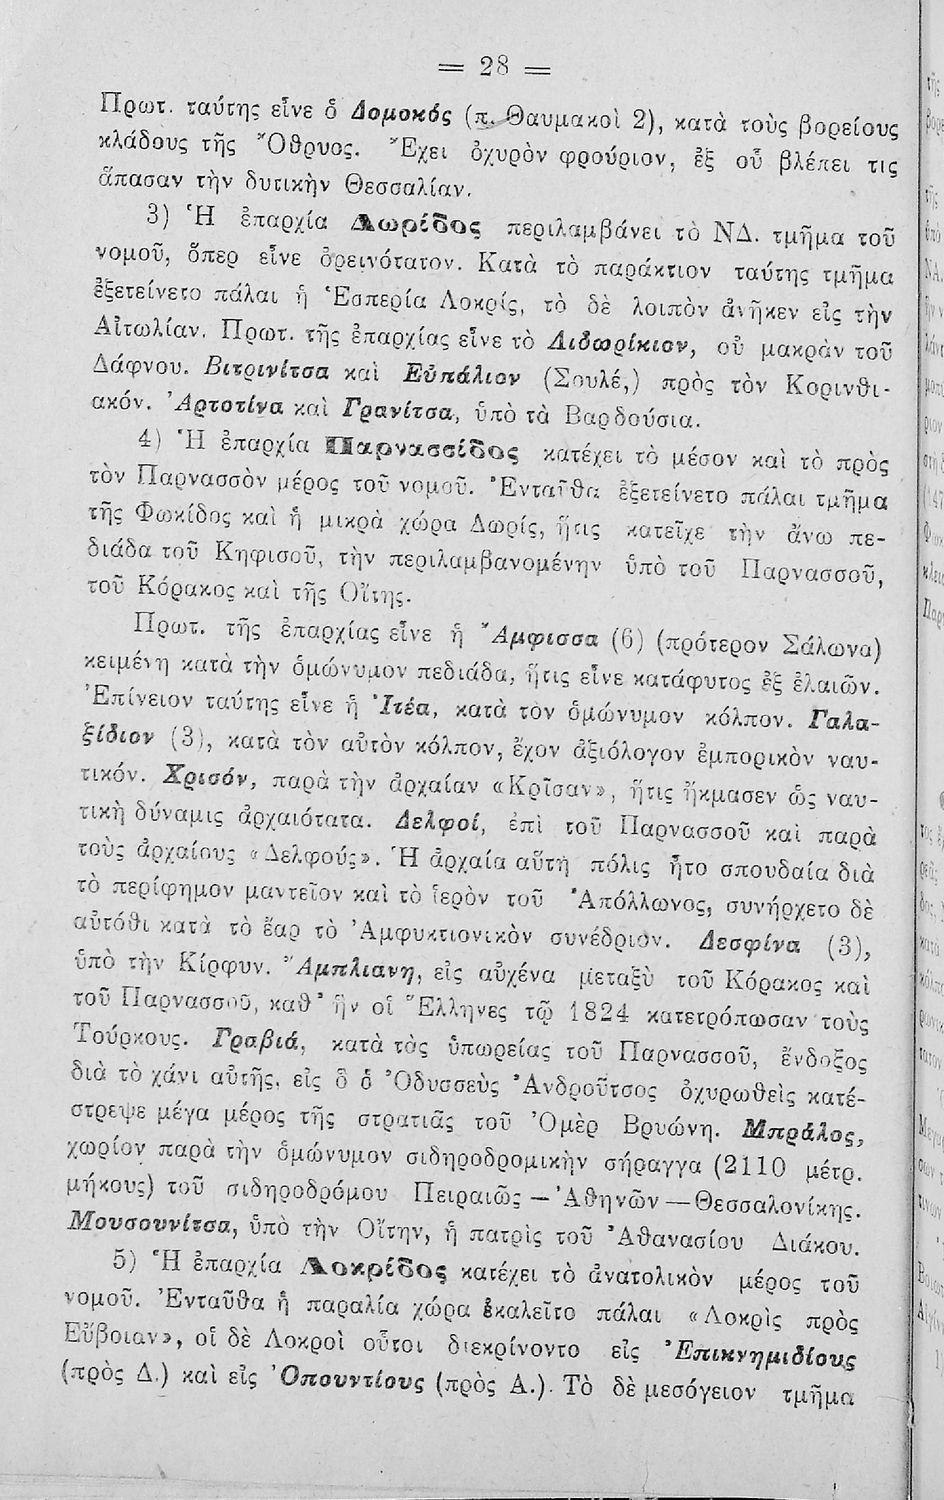 = 28 =
Πρωτ. ταύτης εἶνε ὁ Δομοκός (π. Θαυμακοὶ 2), κατὰ τοὺς βορείους
κλάδους τῆς Ὄθρυος. Ἔχει ὀχυρὸν φρούριον, ἐξ οὗ βλέπει τις
ἅπασαν τὴν δυτικὴν Θεσσαλίαν.
3) Ἡ ἐπαρχία Δωρίδος περιλαμβάνει τὸ ΝΔ. τμῆμα τοῦ
νομοῦ, ὅπερ εἶνε ὀρεινότατον. Κατὰ τὸ παράκτιον ταύτης τμῆμα
ἐξετείνετο πάλαι ἡ Ἑσπερία Λοκρίς, τὸ δὲ λοιπὸν ἀνῆκεν εἰς τὴν
Αἰτωλίαν. Πρωτ. τῆς ἐπαρχίας εἶνε τὸ Λιδωρίκιον, οὐ μακρὰν τοῦ
Δάφνου. Βιτρινίτσα καὶ Εὐπάλιον (Σουλέ,) πρὸς τὸν Κορινθι-
ακόν. Ἀρτοτίνα καὶ Γρανίτσα, ὑπὸ τὰ Βαρδούσια.
4) Ἡ ἐπαρχία Παρνασσίδος κατέχει τὸ μέσον καὶ τὸ πρὸς
τὸν Παρνασσὸν μέρος τοῦ νομοῦ. Ἐνταῦθα ἐξετείνετο πάλαι τμῆμα
τῆς Φωκίδος καὶ ἡ μικρὰ χώρα Δωρίς, ἥτις κατεῖχε τὴν ἄνω πε-
διάδα τοῦ Κηφισοῦ, τὴν περιλαμβανομένην ὑπὸ τοῦ Παρνασσοῦ,
τοῦ Κόρακος καὶ τῆς Οἴτης.
Πρωτ. τῆς ἐπαρχίας εἶνε ἡ Ἄμφισσα (6) (πρότερον Σάλωνα)
κειμένη κατὰ τὴν ὁμώνυμον πεδιάδα, ἥτις εἶνε κατάφυτος ἐξ ἐλαιῶν.
Ἐπίνειον ταύτης εἶνε ἡ Ἰτέα, κατὰ τὸν ὁμώνυμον κόλπον. Γαλα-
ξίδιον (3), κατὰ τὸν αὐτὸν κόλπον, ἔχον ἀξιόλογον ἐμπορικὸν ναυ-
τικόν. Χρισόν, παρὰ τὴν ἀρχαίαν «Κρῖσαν», ἥτις ἤκμασεν ὡς ναυ-
τικὴ δύναμις ἀρχαιότατα. Δελφοί, ἐπὶ τοῦ Παρνασσοῦ καὶ παρὰ
τοὺς ἀρχαίους «Δελφούς». Ἡ ἀρχαία αὕτη πόλις ἦτο σπουδαία διὰ
τὸ περίφημον μαντεῖον καὶ τὸ ἱερὸν τοῦ Ἀπόλλωνος, συνήρχετο δὲ
αὐτόθι κατὰ τὸ ἔαρ τὸ Ἀμφυκτιονικὸν συνέδριον. Δεσφίνα (3),
ὑπὸ τὴν Κίρφυν. Ἄμπλιανη, εἰς αὐχένα μεταξὺ τοῦ Κόρακος καὶ
τοῦ Παρνασσοῦ, καθ' ἣν οἱ Ἕλληνες τῷ 1824 κατετρόπωσαν τοὺς
Τούρκους. Γραβιά, κατὰ τὰς ὑπωρείας τοῦ Παρνασσοῦ, ἔνδοξος
διὰ τὸ χάνι αὐτῆς, εἰς ὃ ὁ Ὀδυσσεὺς Ἀνδροῦτσος ὀχυρωθεὶς κατέ-
στρεψε μέγα μέρος τῆς στρατιᾶς τοῦ Ὀμὲρ Βρυώνη. Μπράλος,
χωρίον παρὰ τὴν ὁμώνυμον σιδηροδρομικὴν σήραγγα (2110 μέτρ.
μήκους) τοῦ σιδηροδρόμου Πειραιῶς — Ἀθηνῶν — Θεσσαλονίκης.
Μουσουνίτσα, ὑπὸ τὴν Οἴτην, ἡ πατρὶς τοῦ Ἀθανασίου Διάκου.
5) Ἡ ἐπαρχία Λοκρίδος κατέχει τὸ ἀνατολικὸν μέρος τοῦ
νομοῦ. Ἐνταῦθα ἡ παραλία χώρα ἐκαλεῖτο πάλαι «Λοκρὶς πρὸς
Εὔβοιαν», οἱ δὲ Λοκροὶ οὗτοι διεκρίνοντο εἰς Ἐπικνημιδίους
(πρὸς Δ.) καὶ εἰς Ὀπουντίους (πρὸς Α.). Τὸ δὲ μεσόγειον τμῆμα